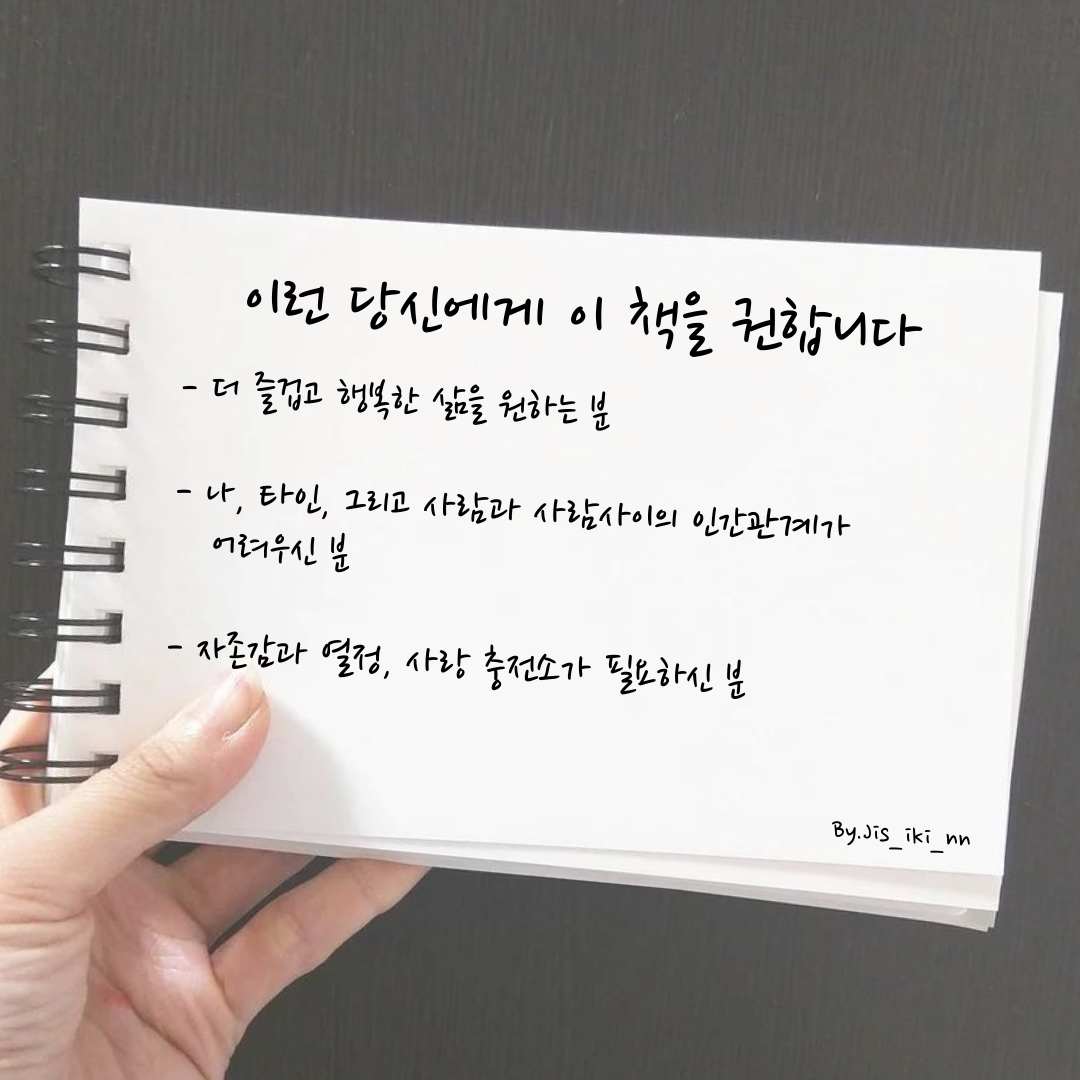 이런 당신에게 이 책을 권합니다
- 더 즐겁고 행복한 삶을 원하는 분
- 나, 타인, 그리고 사람과 사람사이의 인간관계가
어려우신 분
- 자존감과 열정, 사랑 충전소가 필요하신 분
By.Jis_iki_nn